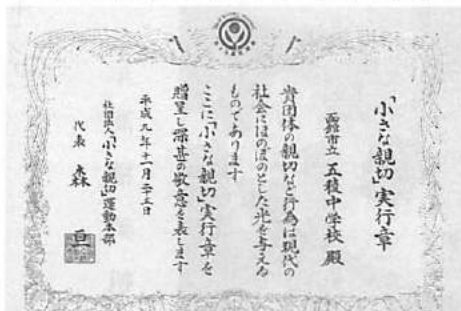 「小さな親切」実行章
函館市立 五稜中学校 殿
貴団体の親切な行為は現代の
社会にほのぼのとした光を与える
ものであります
ここに「小さな親切」実行章を
贈呈し深甚の敬意を表します
平成九年十一月二十五日
社団法人「小さな親切」運動本部
代表 森 亘